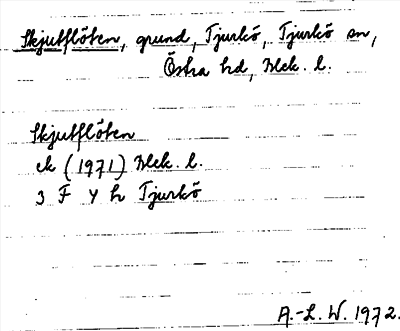 Skjutflöten, grund, Tjurkö, Tjurkö sn,
Östra hd, Blek. l.
Skjutflöten
ek (1971) Blek. l.
3 F 4 h Tjurkö
A.-L. W. 1972.